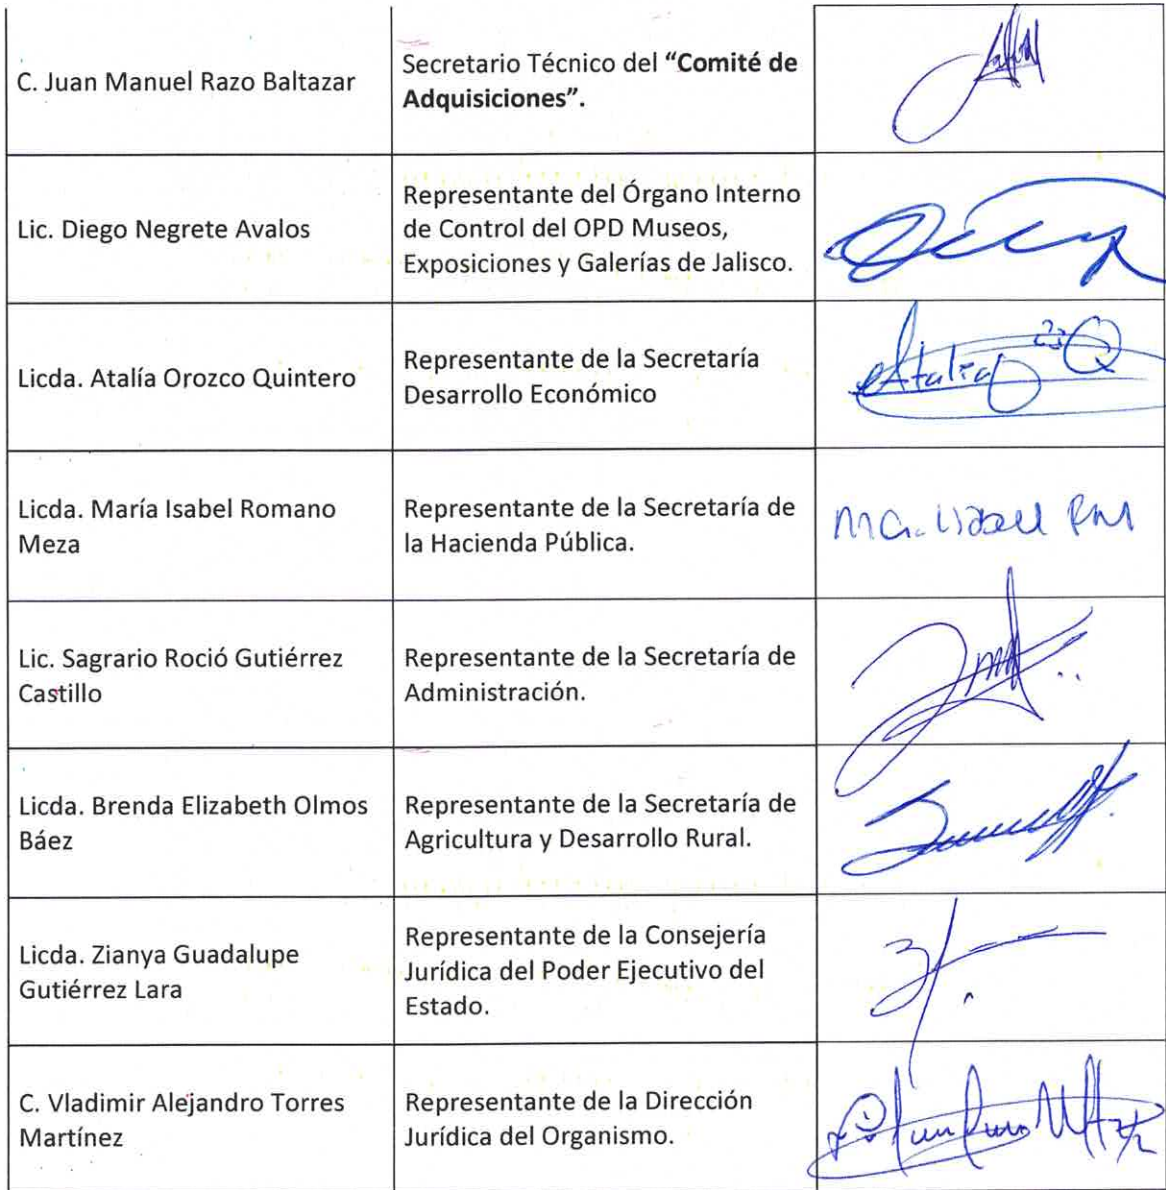 C. Juan Manuel Razo Baltazar
Secretario Técnico del “Comité de
Adquisiciones”.
Lic. Diego Negrete Avalos
Representante del Órgano Interno
de Control del OPD Museos,
Exposiciones y Galerías de Jalisco.
Licda. Atalía Orozco Quintero
Representante de la Secretaría
Desarrollo Económico
Atalia
Licda. María Isabel Romano
Meza
Representante de la Secretaría de
la Hacienda Pública.
Lic. Sagrario Roció Gutiérrez
Castillo
Representante de la Secretaría de
Administración.
Licda. Brenda Elizabeth Olmos
Báez
Representante de la Secretaría de
Agricultura y Desarrollo Rural.
Licda. Zianya Guadalupe
Gutiérrez Lara
Representante de la Consejería
Jurídica del Poder Ejecutivo del
Estado.
C. Vladimir Alejandro Torres
Martínez
Representante de la Dirección
Jurídica del Organismo.